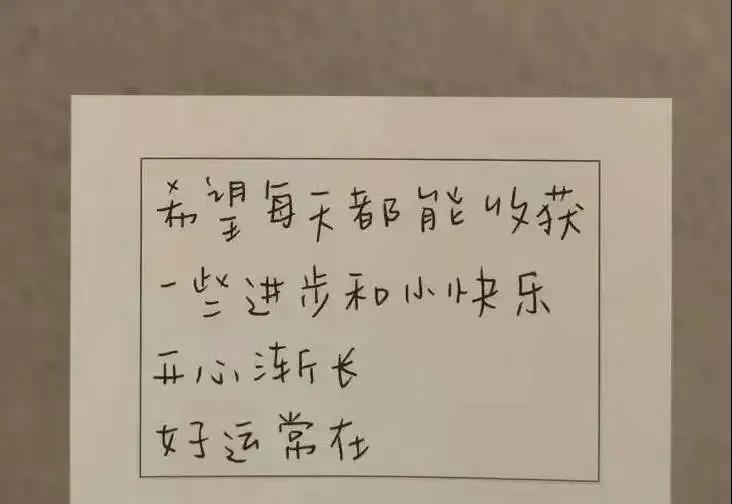 希望每天都能收获
一些进步和小快乐
开心渐长
好运常在